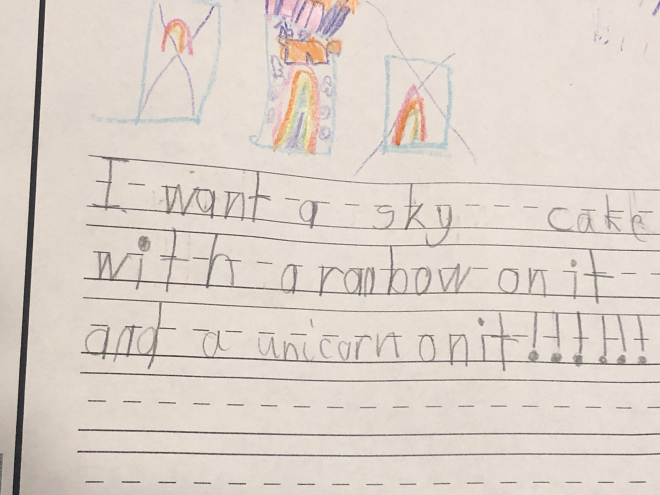 I want a sky cake
with a ranbow on it
and a unicorn on it!!!!!!